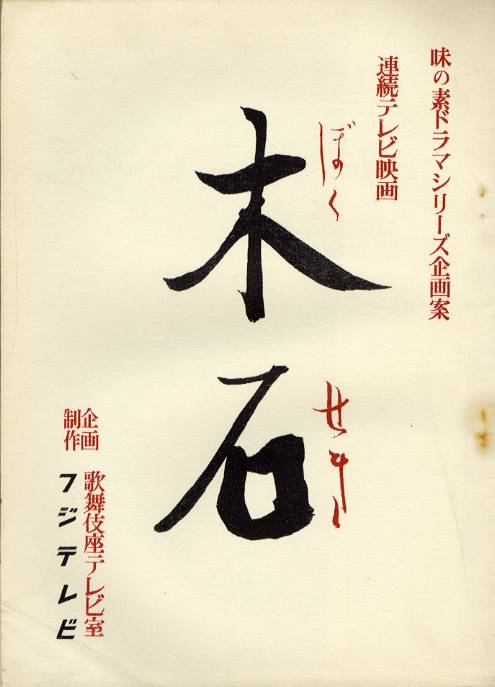 味の素ドラマシリーズ企画案
連続テレビ映画
ぼく
せき
木石
企画
制作
歌舞伎座テレビ室
フジテレビ